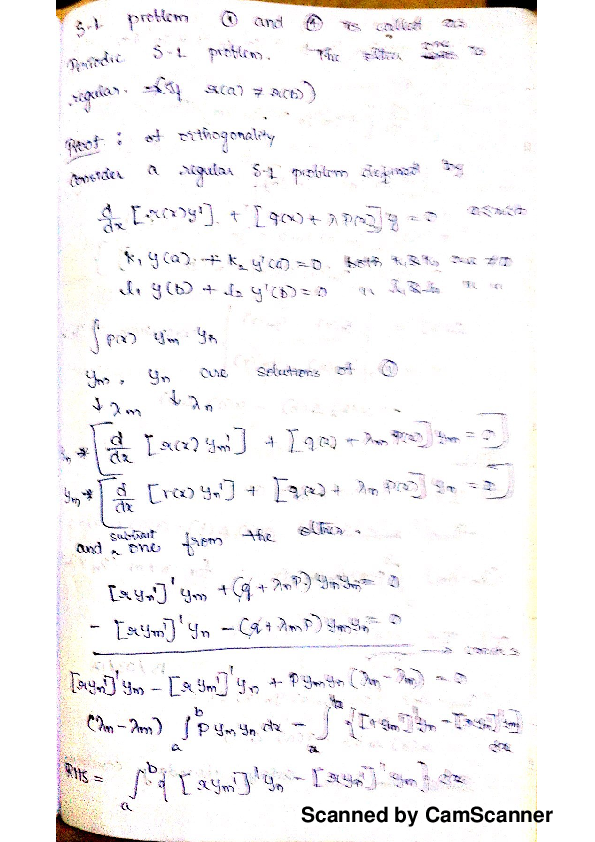 S-L problem ① and ④ is called as
Periodic S-L problem. The other one is
regular. r(a) ≠ r(b))
Proof : of orthogonality
Consider a regular S-L problem defined by
d/dx [r(x)y'] + [q(x) + λ p(x)] y = 0
k₁ y(a) + k₂ y'(a) = 0.
l₁ y(b) + l₂ y'(b) = 0
∫ p(x) ym yn
ym, yn are solutions of ①
↓ λm ↓ λn
yn * [ d/dx [r(x) ym'] + [q(x) + λm p(x)] ym = 0 ]
ym * [ d/dx [r(x) yn'] + [q(x) + λn p(x)] yn = 0 ]
and subtract one from the other.
[ryn']' ym + (q + λn p) ym yn = 0
- [rym']' yn - (q + λm p) ym yn = 0
[ryn']' ym - [rym']' yn + p ym yn (λn - λm) = 0
(λn - λm) ∫ₐᵇ p ym yn dx = ∫ₐᵇ {[rym']' yn - [ryn']' ym} dx
RHS = ∫ₐᵇ { [rym']' yn - [ryn']' ym } dx
Scanned by CamScanner